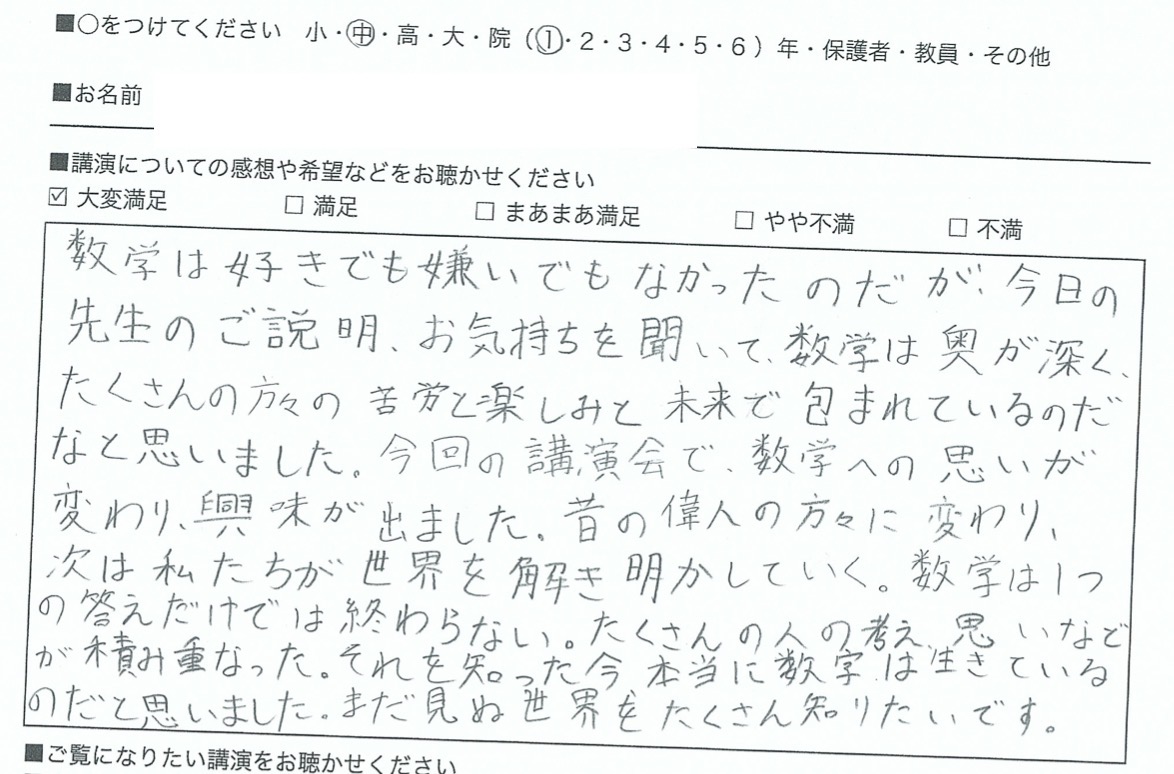 ■○をつけてください 小・中・高・大・院（1・2・3・4・5・6）年・保護者・教員・その他
■お名前
■講演についての感想や希望などをお聴かせください
☑ 大変満足 □ 満足 □ まあまあ満足 □ やや不満 □ 不満
数学は好きでも嫌いでもなかったのだが、今日の
先生のご説明、お気持ちを聞いて、数学は奥が深く、
たくさんの方々の苦労と楽しみと未来で包まれているのだ
なと思いました。今回の講演会で、数学への思いが
変わり、興味が出ました。昔の偉人の方々に変わり、
次は私たちが世界を解き明かしていく。数学は1つ
の答えだけでは終わらない。たくさんの人の考え、思いなど
が積み重なった。それを知った今本当に数学は生きている
のだと思いました。まだ見ぬ世界をたくさん知りたいです。
■ご覧になりたい講演をお聴かせください